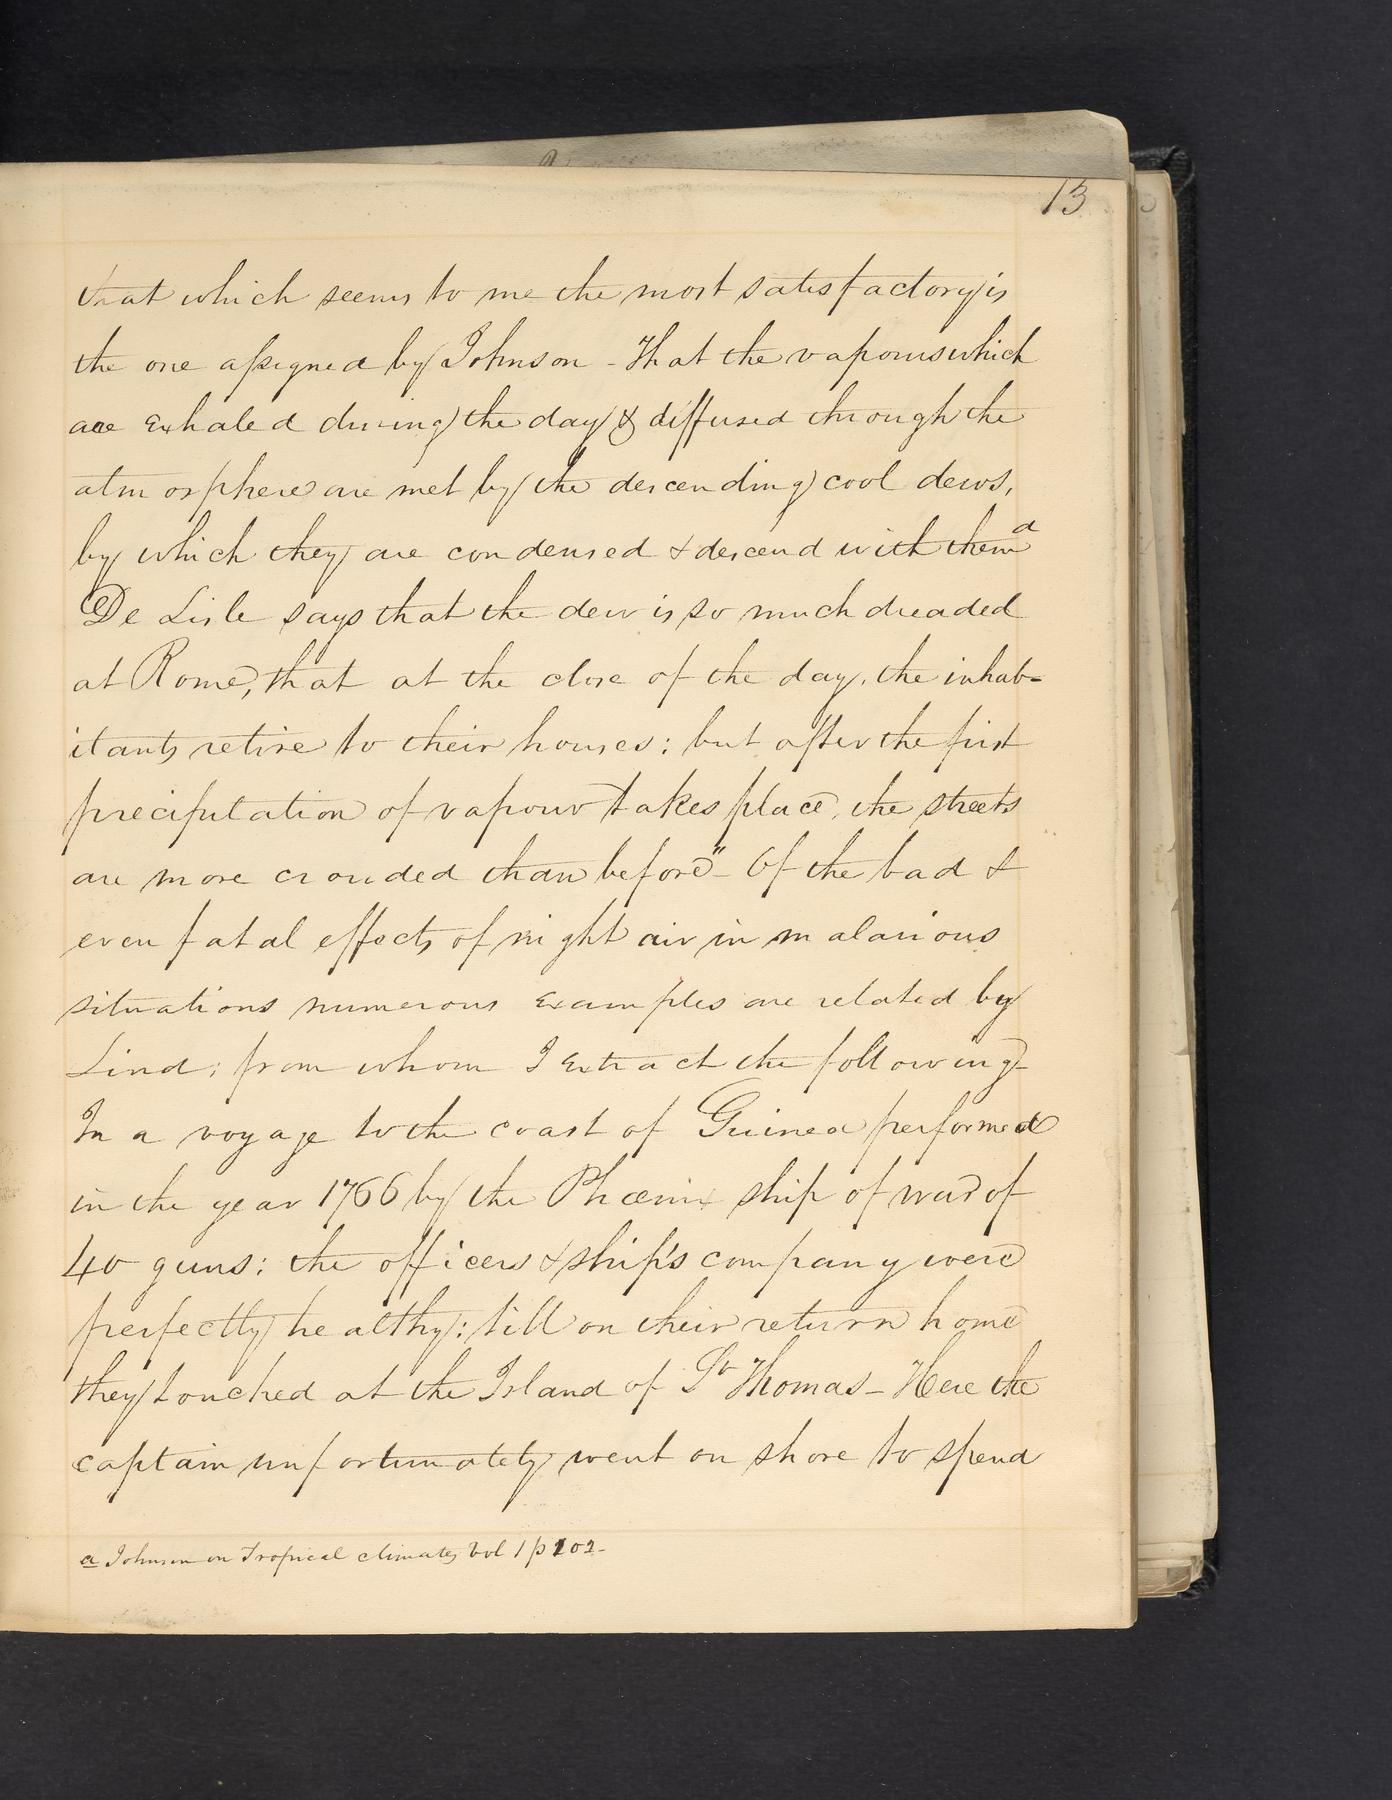 13
that which seems to me the most satisfactory is
the one assigned by Johnson - That the vapours which
are exhaled during the day & diffused through the
atmosphere are met by the descending cool dews,
by which they are condensed & descend with them a
De Lisle says that the dew is so much dreaded
at Rome, that at the close of the day, the inhab-
itants retire to their houses; but after the first
precipitation of vapour takes place, the streets
are more crouded than before" - Of the bad &
even fatal effects of night air in malarious
situations numerous examples are related by
Lind; from whom I extract the following-
In a voyage to the coast of Guinea performed
in the year 1766 by the Phœnix ship of war of
40 guns; the officers & ship's company were
perfectly healthy; till on their return home
they touched at the Island of St Thomas - Here the
captain unfortunately went on shore to spend
a Johnson on Tropical climates Vol 1 p 102-